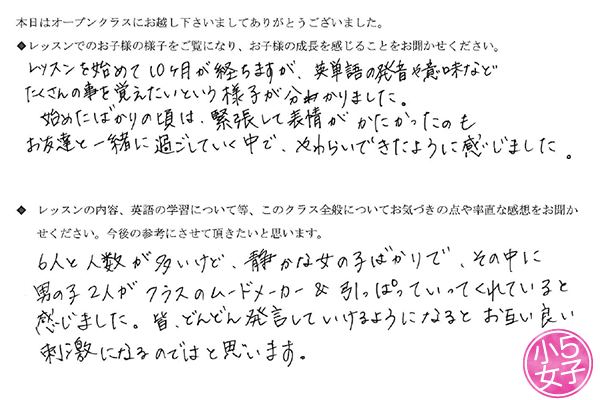 本日はオープンクラスにお越し下さいましてありがとうございました。
◆レッスンでのお子様の様子をご覧になり、お子様の成長を感じることをお聞かせください。
レッスンを始めて10ヶ月が経ちますが、英単語の発音や意味など
たくさんの事を覚えたいという様子が分わかりました。
始めたばかりの頃は、緊張して表情がかたかったのも
お友達と一緒に過ごしていく中で、やわらいできたように感じました。
◆ レッスンの内容、英語の学習について等、このクラス全般についてお気づきの点や率直な感想をお聞か
せください。今後の参考にさせて頂きたいと思います。
6人と人数が多いけど、静かな女の子ばかりで、その中に
男の子2人がクラスのムードメーカー&引っぱっていってくれていると
感じました。皆、どんどん発言していけるようになるとお互い良い
刺激になるのではと思います。
小5
女子